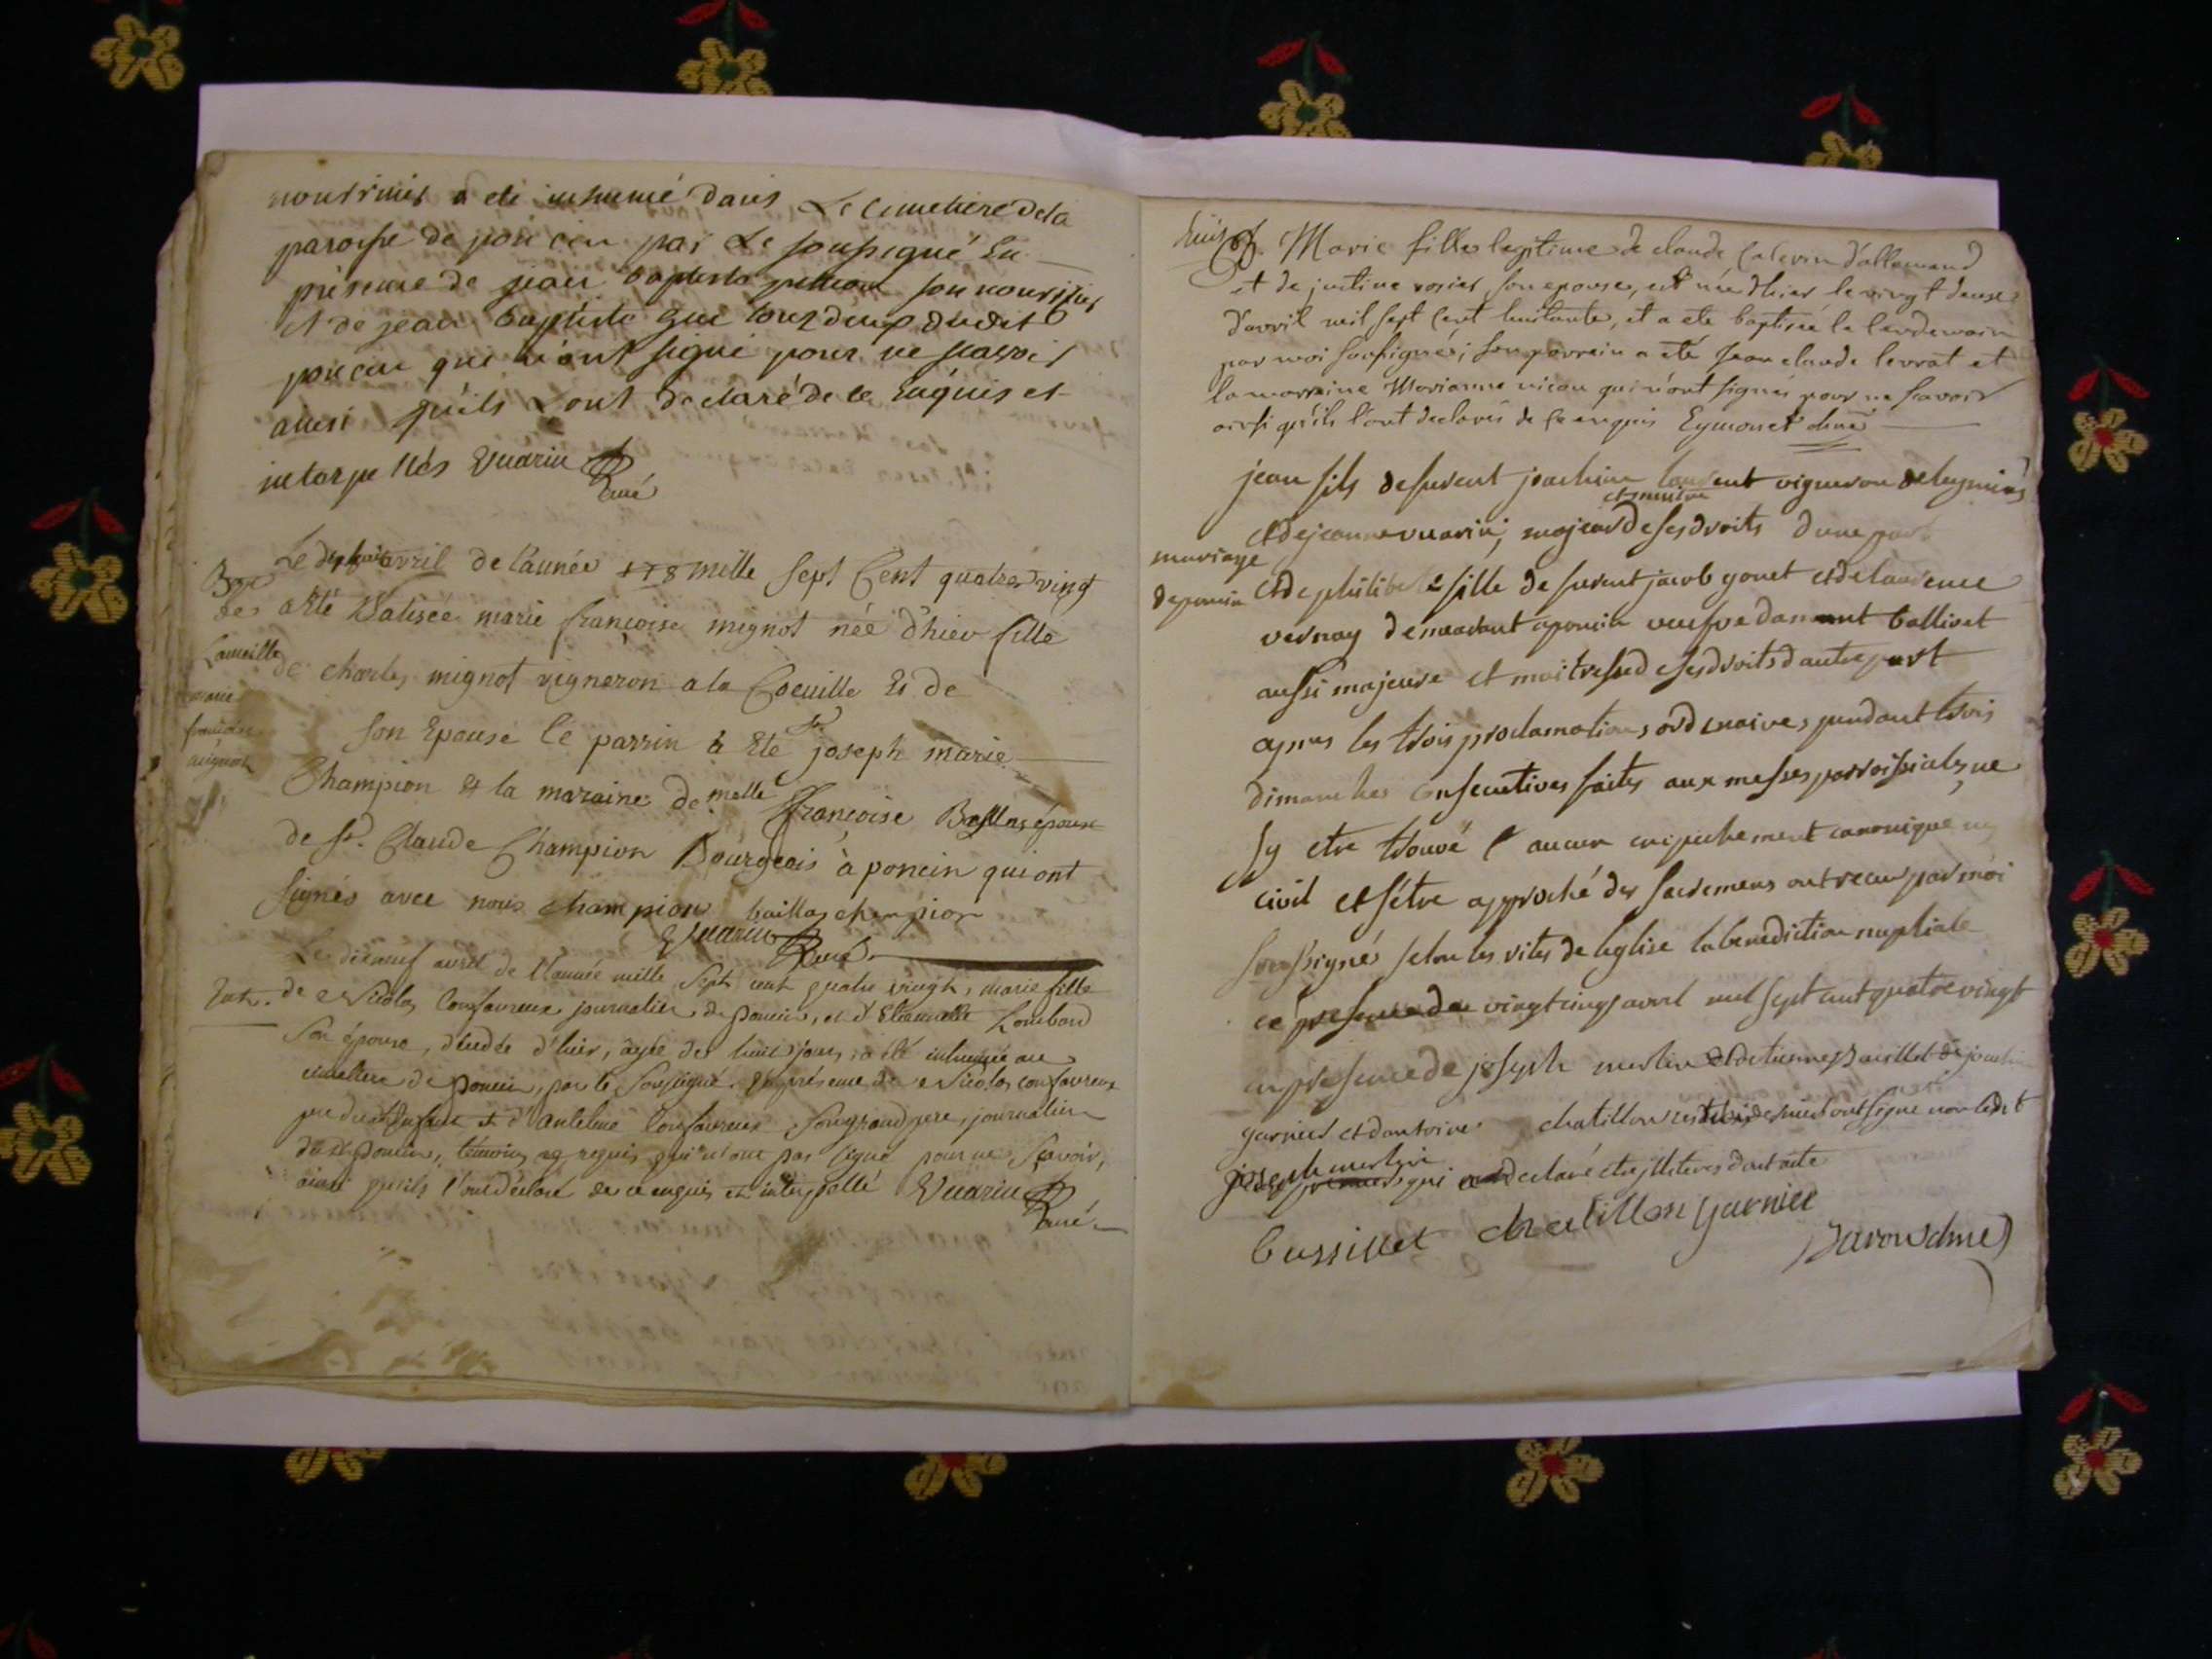 nourricier a eté inhumé dans Le Cimetiere dela
paroisse de poncin par Le soussigné En
présence de jean baptiste son nourissier
et de jean baptiste tous deux dudit
poncin qui n'ont signé pour ne scavoir
ainsi qu'ils L'ont declaré de ce enquis et
interpellés Vuarin
Curé
Le dix huit avril de l'année 178 mille sept Cent quatre vingt
a été Batisée marie françoise mignot née d'hier fille
de charles mignot vigneron a la Coeuille Et de
son Epouse le parrin a Eté Sr joseph marie
Champion Et la maraine demelle françoise épouse
de Sr. Claude Champion Bourgeois à poncin qui ont
signés avec nous champion baillas champion
Vuarin Curé
Bap
de
Lameille
marie
françoise
mignot
Le dixneuf avril de l'année mille sept cent quatre vingt, marie fille
Ent. de Nicolas Confavreux journalier de Poncin, et d'Etiennette Lombard
son épouse, décedée d'hier, agée de huit jours, a été inhumée au
cimettiere de Poncin, par le soussigné. En présence de Nicolas confavreux
pere de enfant et d'antelme Confavreux son grand pere, journalier
dudt Poncin, témoins requis qui n'ont pas signé pour ne sçavoir,
ainsi qu'ils l'ont déclaré de ce enquis et interpellé Vuarin
Curé
Marie fille legitime de claude d'allemand
et de justine rosier son epouse, est née d'hier le vingt deuxe
d'avril mil sept cent huitante, et a eté baptisée le lendemain
par moi soussigné; son parrein a eté Jean claude levrat et
la marraine Marianne nicou qui n'ont signés pour ne scavoir
ainsi qu'ils l'ont declarés de ce enquis Eymonet
jean fils defunt joachim laurent vigneron
et dejeanne vuarin, majeur et maitre de ses droits d'une part
mariage
deponcin
Et de philiberte fille de furent jacob gonet et delaurence
vernay demeurant aponcin veufve ballivet
aussi majeure et maitresse de ses droits d'autre part
apres les trois proclamations ordinaires pendant trois
dimanches Consecutives faites aux messes parroissiales, ne
sy etre trouvé aucun empechement canonique ny
civil et s'être approché des sacremens ont recu par moi
soussigné selon les rites de leglise la benediction nuptiale
ce presence de vingt cinq avril mil sept cent quatre vingt
en presence de joseph merlin
garnier et dantoine chatillon
joseph merlin qui declaré etre illiteres
bussillet chatillon garnier